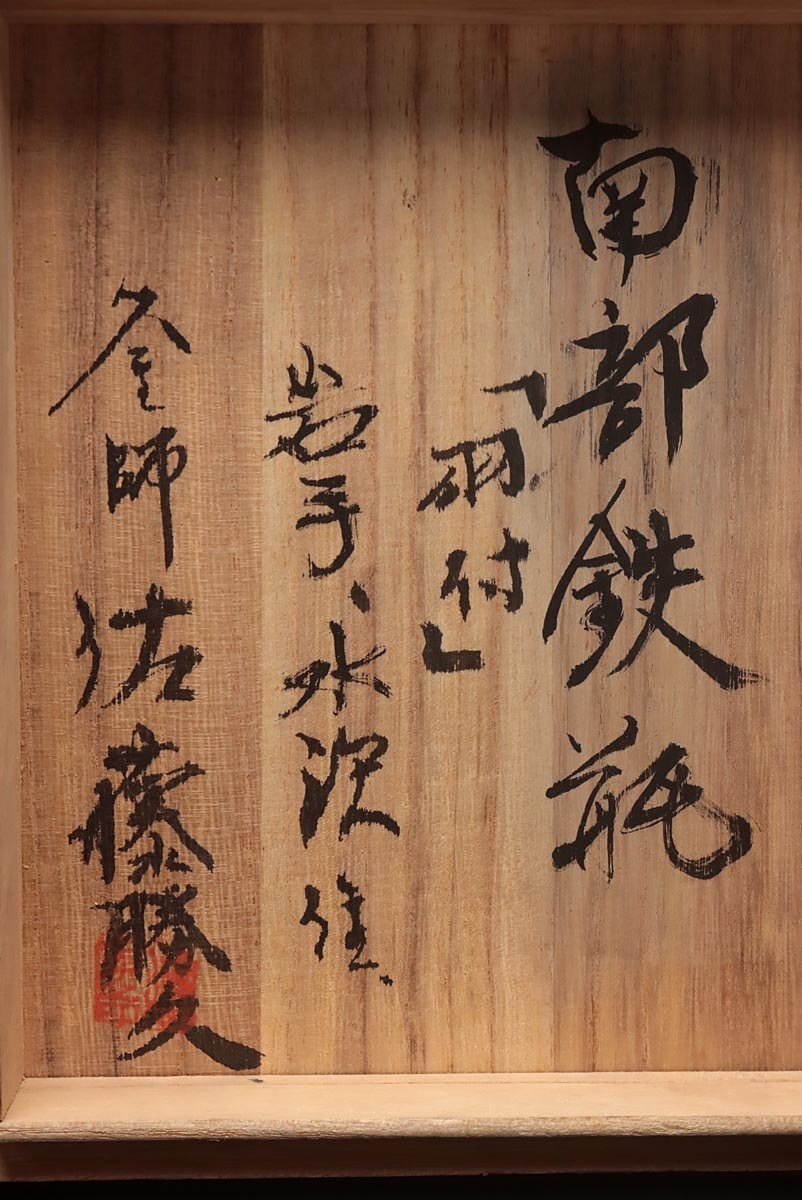 南部鉄瓶
「羽付」
岩手、水沢住、
釜師佐藤勝久